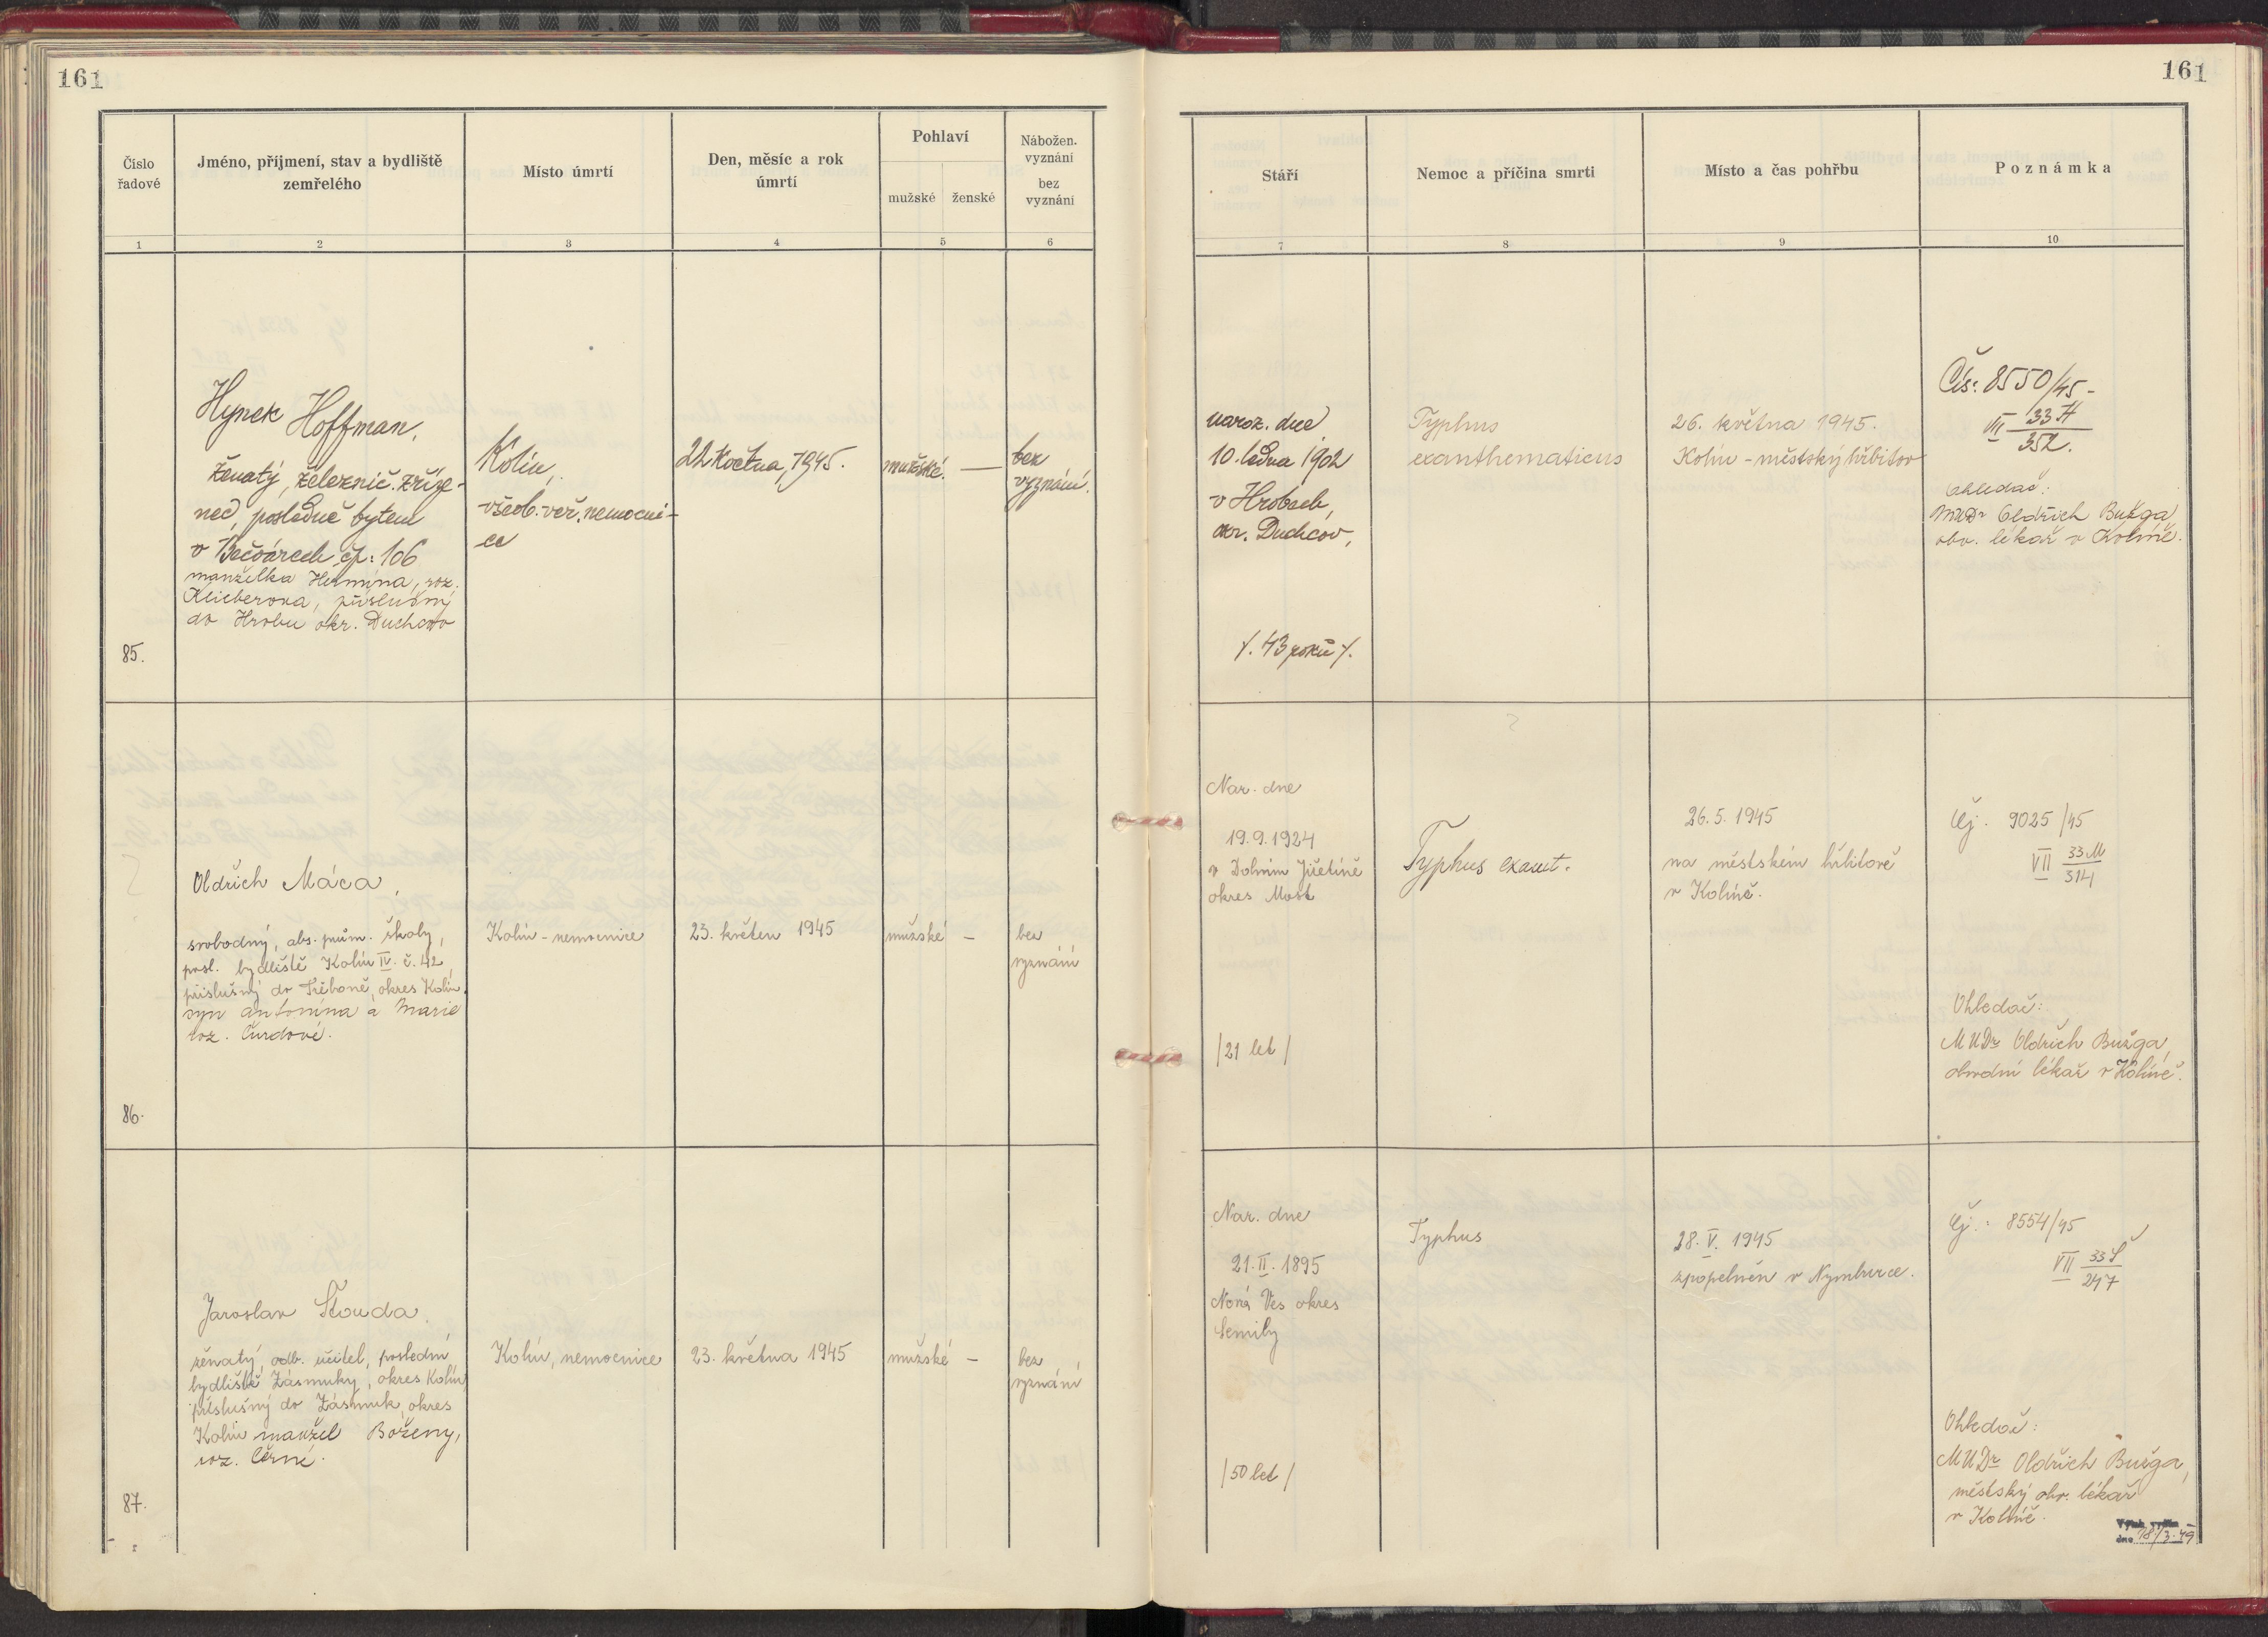 161
161
Číslo
řadové
Jméno, příjmení, stav a bydliště
zemřelého
Místo úmrtí
Den, měsíc a rok
úmrtí
Pohlaví
mužské
ženské
Nábožen.
vyznání
bez
vyznání
Stáří
Nemoc a příčina smrti
Místo a čas pohřbu
Poznámka
1
2
3
4
5
6
7
8
9
10
85.
Hynek Hoffman,
ženatý, železnič. zříze-
nec, posledně bytem
v Bečvárech čp: 106
manželka Hermina, roz.
příslušný
do Hrobu okr. Duchcov
Kolín,
všeob. veř. nemocni-
ce
22. května, 1945.
mužské. —
bez
vyznání.
naroz. dne
10. ledna 1902
v Hrobech,
okr. Duchcov,
/. 43 roků /.
Typhus
exanthematicus
26. května 1945.
Kolín - městský hřbitov
Čís: 8550/45 -
VII 33 H
352.
Ohledač:
MUDr Oldřich Bužga
obv. lékař v Kolíně.
86.
Oldřich Máca,
svobodný, abs. prům. školy,
posl. bydliště Kolín IV. č. 42,
příslušný do Třeboně, okres Kolín,
syn Antonína a Marie
roz. Čurdové.
Kolín - nemocnice
23. květen 1945
mužské —
bez
vyznání
Nar. dne
19.9.1924
v Dolním Jiřetíně
okres Most
/21 let/
Typhus exant.
26.5.1945
na městském hřbitově
v Kolíně.
Čj. 9025/45
VII 33 M
314
Ohledač:
MUDr Oldřich Bužga,
obvodní lékař v Kolíně.
87.
Jaroslav Štouda,
ženatý, odb. učitel, poslední
bydliště Zásmuky, okres Kolín,
příslušný do Zásmuk, okres
Kolín manžel Boženy,
roz. Černé.
Kolín, nemocnice
23. května 1945
mužské —
bez
vyznání
Nar. dne
21.II.1895
Nová Ves okres
Semily
/50 let/
Typhus
28.V.1945
zpopelněn v Nymburce.
Čj.: 8554/45
VII 33 Š
247
Ohledač:
MUDr Oldřich Bužga,
městský obv. lékař
v Kolíně.
dne 18/3.49